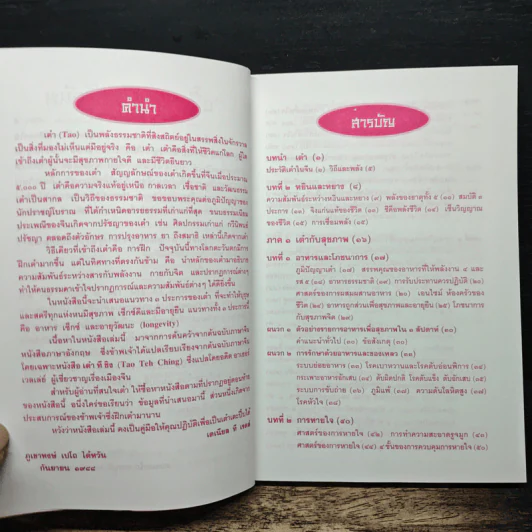 คำนำ
เต๋า (Tao) เป็นพลังธรรมชาติที่สิงสถิตย์อยู่ในสรรพสิ่งในจักรวาล
เป็นสิ่งที่มองไม่เห็นแต่มีอยู่จริง คือ เต๋า เต๋าคือสิ่งที่ให้ชีวิตแก่โลก ผู้ใด
เข้าถึงเต๋าผู้นั้นจะมีสุขภาพกายใจดี และมีชีวิตยืนยาว
หลักการของเต๋า สัญญลักษณ์ของเต๋าเกิดขึ้นที่จีนเมื่อประมาณ
๕,๐๐๐ ปี เต๋าคือความจริงแท้อยู่เหนือ กาลเวลา เชื้อชาติ และวัฒนธรรม
เต๋าเป็นสากล เป็นวิถีของธรรมชาติ ขอขอบพระคุณต่อภูมิปัญญาของ
นักปราชญ์โบราณ ที่ได้กำเนิดอารยธรรมที่เก่าแก่ที่สุด ขนบธรรมเนียม
ประเพณีของจีนเกิดจากปรัชญาของเต๋า เช่น ศิลปกรรมเก่าแก่ กวีนิพนธ์
ปรัชญา ตลอดถึงตัวอักษร การปรุงอาหาร ยา ถึงสมาธิ เหล่านี้เกิดจากเต๋า
วิธีเดียวที่เข้าถึงเต๋าคือการฝึก ปัจจุบันนี้ทางโลกตะวันตกมีการ
ฝึกเต๋ามากขึ้น แต่ในทิศทางที่ตรงกันข้าม คือ นำหลักของเต๋ามาอธิบาย
ความสัมพันธ์ระหว่างสสารกับพลังงาน กายกับจิต และปรากฏการณ์ต่างๆ
ทำให้คนธรรมดาเข้าใจปรากฏการณ์และความสัมพันธ์ต่างๆ ได้ดียิ่งขึ้น
ในหนังสือนี้จะนำเสนอแนวทาง ๓ ประการของเต๋า ที่จะทำให้บุรุษ
และสตรีทุกแห่งหนมีสุขภาพ เซ็กส์ดีและมีอายุยืน แนวทางทั้ง ๓ ประการนี้
คือ อาหาร เซ็กส์ และอายุวัฒนะ (longevity)
เนื้อหาในหนังสือเล่มนี้ มาจากการค้นคว้าจากต้นฉบับภาษาจีน
หนังสือภาษาอังกฤษ ซึ่งข้าพเจ้าได้แปลเรียบเรียงจากต้นฉบับภาษาจีน
โดยเฉพาะหนังสือ เต๋า ที ชิง (Tao Teh Ching) ซึ่งแปลโดยอดีต อาเธอร์
เวลเล่ย์ ผู้เชี่ยวชาญเรื่องเมืองจีน
สำหรับผู้อ่านที่สนใจเต๋า ให้ซื้อหาหนังสือตามที่ปรากฏอยู่ตอนท้าย
ของหนังสือนี้ อนึ่งใคร่ขอเรียนว่า ข้อมูลที่นำเสนอมานี้ ส่วนหนึ่งเกิดจาก
ประสบการณ์ของข้าพเจ้าซึ่งฝึกเต๋ามานาน
หวังว่าหนังสือเล่มนี้ คงเป็นคู่มือให้คุณปฏิบัติเพื่อเป็นเต๋าและยั่งยืน
เดเนียล พี เรดด์
ภูเขาพรย์ เปโถ ไต้หวัน
กันยายน ๑๙๘๘
สารบัญ
บทนำ เต๋า (๑)
ประวัติเต๋าในจีน (๑) วิถีและพลัง (๕)
บทที่ ๒ หยินและหยาง (๘)
ความสัมพันธ์ระหว่างหยินและหยาง (๙) พลังของธาตุทั้ง ๕ (๑๐) สมบัติ ๓
ประการ (๑๐) จิงแก่นแท้ของชีวิต (๑๐) ชีคือพลังชีวิต (๑๔) เช็นวิญญาณ
ของชีวิต (๑๕) การเชื่อมพลัง (๑๕)
ภาค ๑ เต๋ากับสุขภาพ (๑๖)
บทที่ ๑ อาหารและโภชนาการ (๑๗)
ภูมิปัญญาเต๋า (๑๗) สรรพคุณของอาหารที่ให้พลังงาน ๔ และ
รส ๕ (๑๘) อาหารธรรมชาติ (๑๙) การรับประทานควรปฏิบัติ (๒๐)
ศาสตร์ของการผสมผสานอาหาร (๒๐) เอนไซม์ ห้องครัวของ
ชีวิต (๒๓) อาหารถูกส่วนเพื่อสุขภาพและอายุยืน (๒๕) โภชนาการ
กับสุขภาพจิต (๒๘)
ผนวก ๑ ตัวอย่างรายการอาหารเพื่อสุขภาพใน ๑ สัปดาห์ (๓๐)
คำแนะนำทั่วไป (๓๐) ข้อสังเกตุ (๓๐)
ผนวก ๒ การรักษาด้วยอาหารและของเหลว (๓๓)
ระบบย่อยอาหาร (๓๓) โรคเบาหวานและโรคตับอ่อนพิการ (๓๔)
กระเพาะอาหารอักเสบ (๓๔) ตับผิดปกติ โรคตับแข็ง ตับอักเสบ (๓๕)
ระบบการขับถ่าย (๓๖) ภูมิแพ้ (๓๗) ความดันโลหิตสูง (๓๗)
โรคหัวใจ (๓๘)
บทที่ ๒ การหายใจ (๔๐)
ศาสตร์ของการหายใจ (๔๒) การทำความสะอาดรูจมูก (๔๓)
ศาสตร์ของการหายใจ (๔๔) ๔ ขั้นของการควบคุมการหายใจ (๕๐)